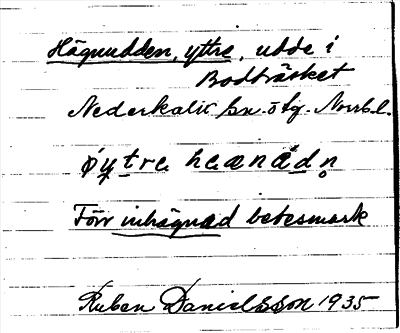 Hägnudden, yttre, udde i
Bodträsket
Nederkalix sn. ö tg. Norrb. l.
øytre hœnadn̥
Förr inhägnad betesmark
Ruben Danielsson 1935